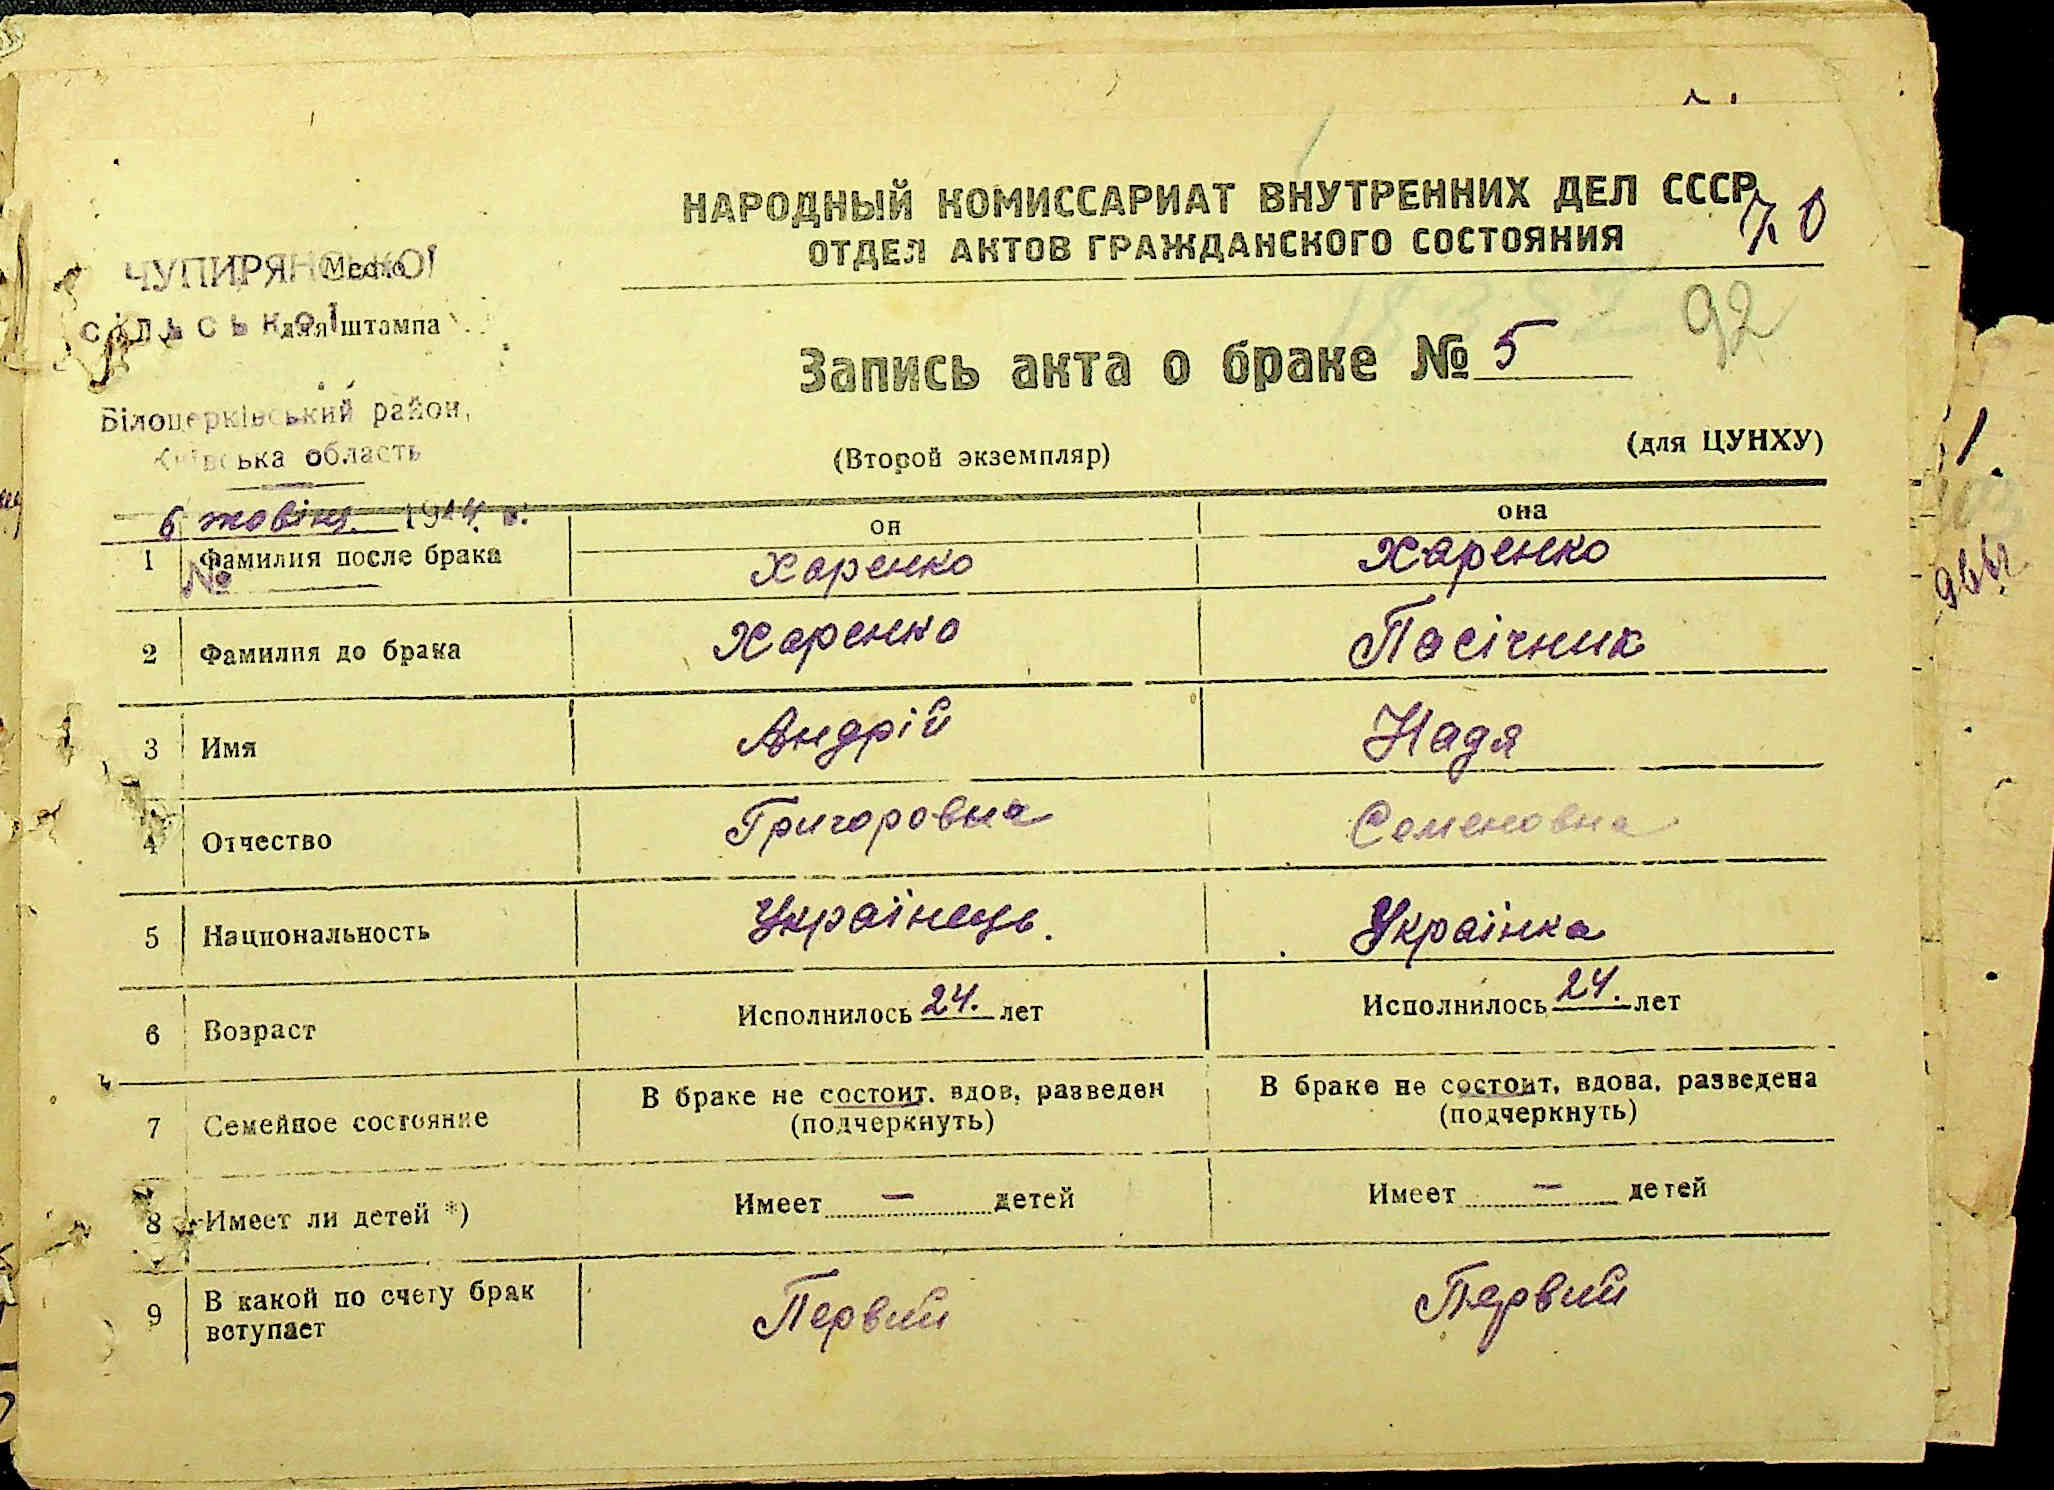 70
НАРОДНЫЙ КОМИССАРИАТ ВНУТРЕННИХ ДЕЛ СССР
ОТДЕЛ АКТОВ ГРАЖДАНСКОГО СОСТОЯНИЯ
92
ЧУПИРЯНСЬКОЇ
Место
сільської
для штампа
Білоцерківський район,
Київська область
6 жовтня 1944 г.
№
Запись акта о браке № 5
(Второй экземпляр)
(для ЦУНХУ)
он она
1 Фамилия после брака Харенко Харенко
2 Фамилия до брака Харенко Пасічник
3 Имя Андрій Надя
4 Отчество Григоровна Семеновна
5 Национальность Українець. Українка
6 Возраст Исполнилось 24. лет Исполнилось 24. лет
7 Семейное состояние В браке не состоит, вдов, разведен (подчеркнуть) В браке не состоит, вдова, разведена (подчеркнуть)
8 Имеет ли детей *) Имеет — детей Имеет — детей
9 В какой по счету брак вступает Первий Первий